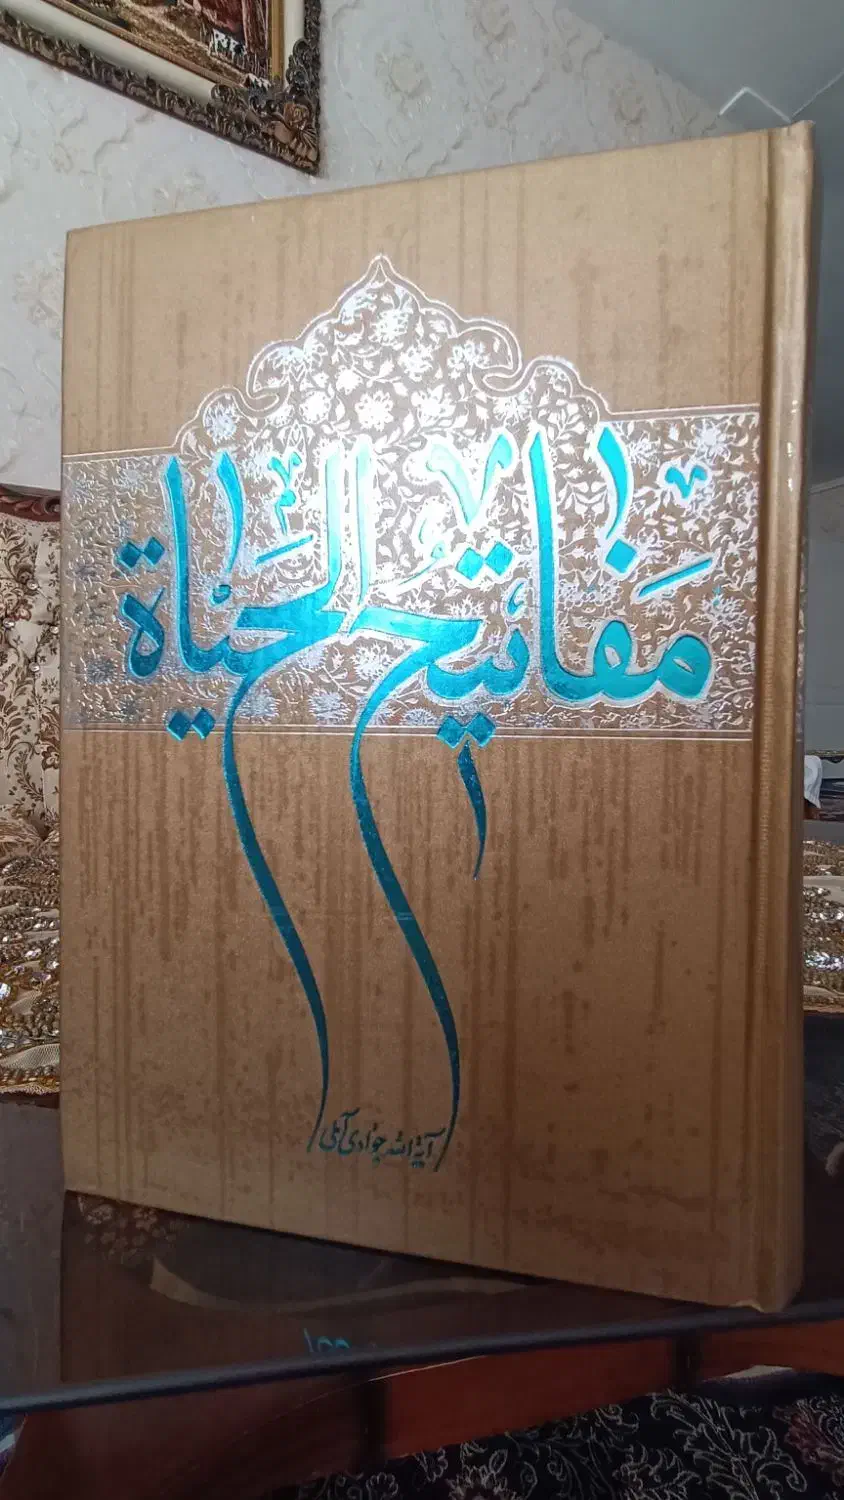 مَفٰاتیحُ الْحَیٰاة
آیة الله جوادی آملی